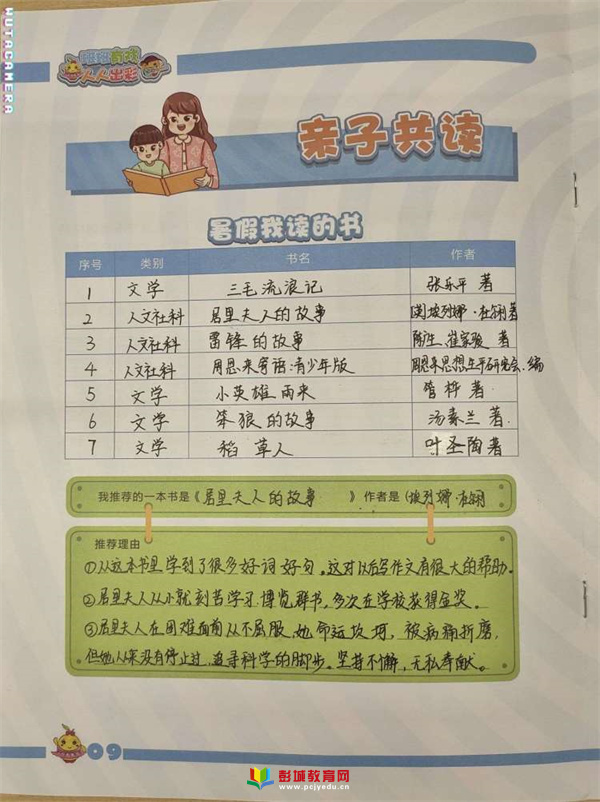 HUTACAMERA
人人出彩
亲子共读
暑假我读的书
序号 类别 书名 作者
1 文学 三毛流浪记 张乐平 著
2 人文社科 居里夫人的故事 [英]埃列娜·杜尔利著
3 人文社科 雷锋的故事 陈广生、崔家骏 著
4 人文社科 周恩来寄语:青少年版 周恩来思想生平研究会·编
5 文学 小英雄雨来 管桦 著
6 文学 笨狼的故事 汤素兰 著
7 文学 稻草人 叶圣陶著
我推荐的一本书是《居里夫人的故事 》作者是 (埃列娜·杜尔利
推荐理由
①从这本书里学到了很多好词好句。这对以后写作文有很大的帮助。
②居里夫人从小就刻苦学习博览群书,多次在学校获得金奖。
③居里夫人在困难面前从不屈服,她命运坎坷,被病痛折磨,
但她从来没有停止过,追寻科学的脚步。坚持不懈,无私奉献。
09
彭城教育网
www.pcjyedu.cn